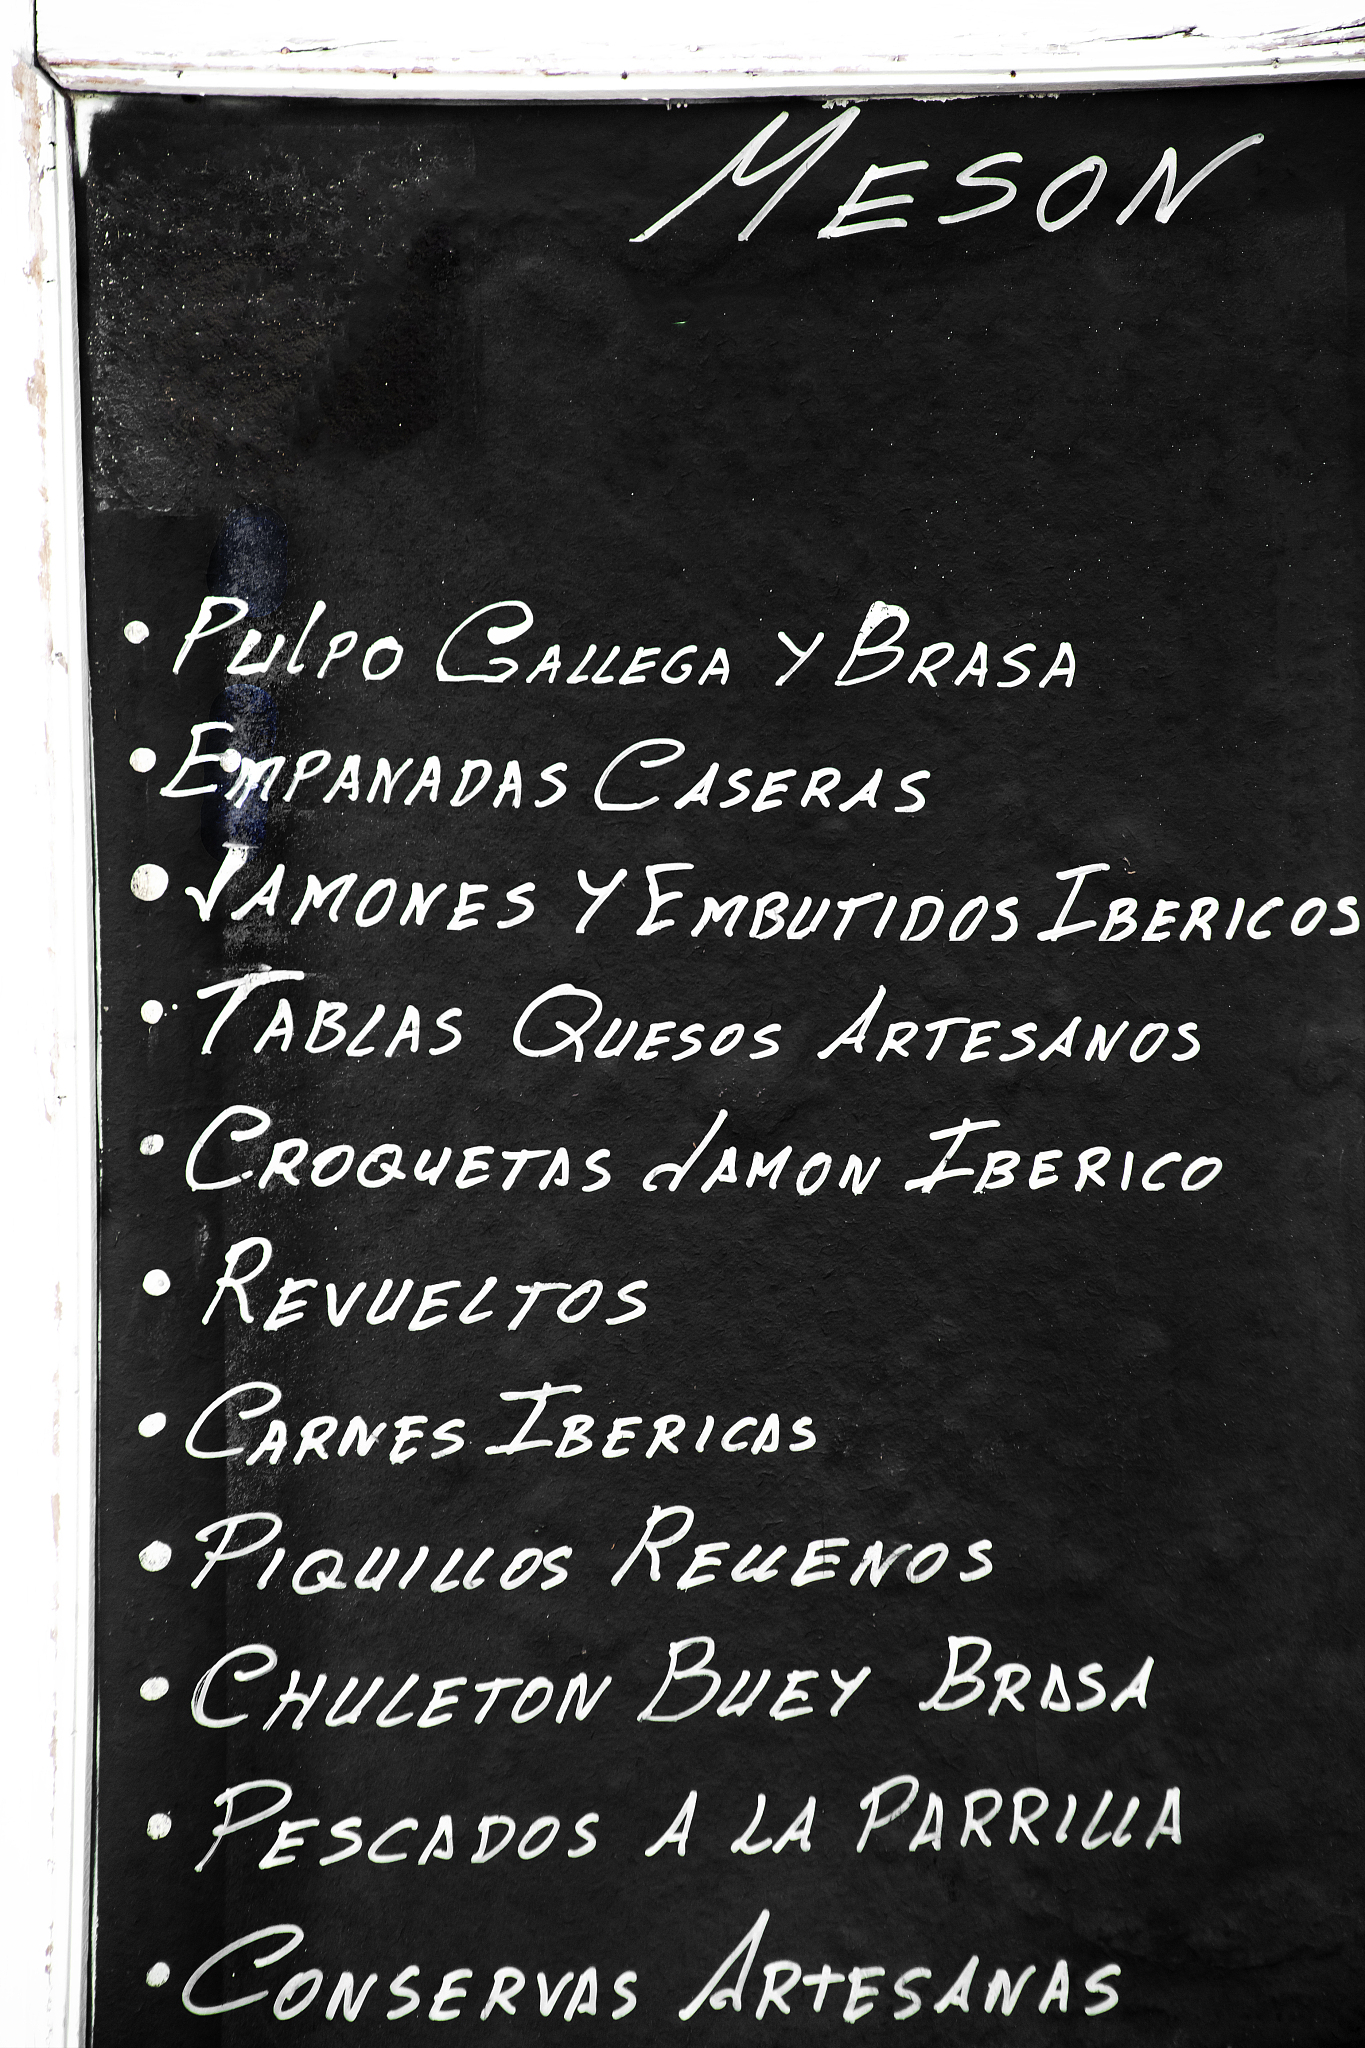 MESON
• PULPO GALLEGA Y BRASA
• EMPANADAS CASERAS
• JAMONES Y EMBUTIDOS IBERICOS
• TABLAS QUESOS ARTESANOS
• CROQUETAS JAMON IBERICO
• REVUELTOS
• CARNES IBERICAS
• PIQUILLOS RELLENOS
• CHULETON BUEY BRASA
• PESCADOS A LA PARRILLA
• CONSERVAS ARTESANAS